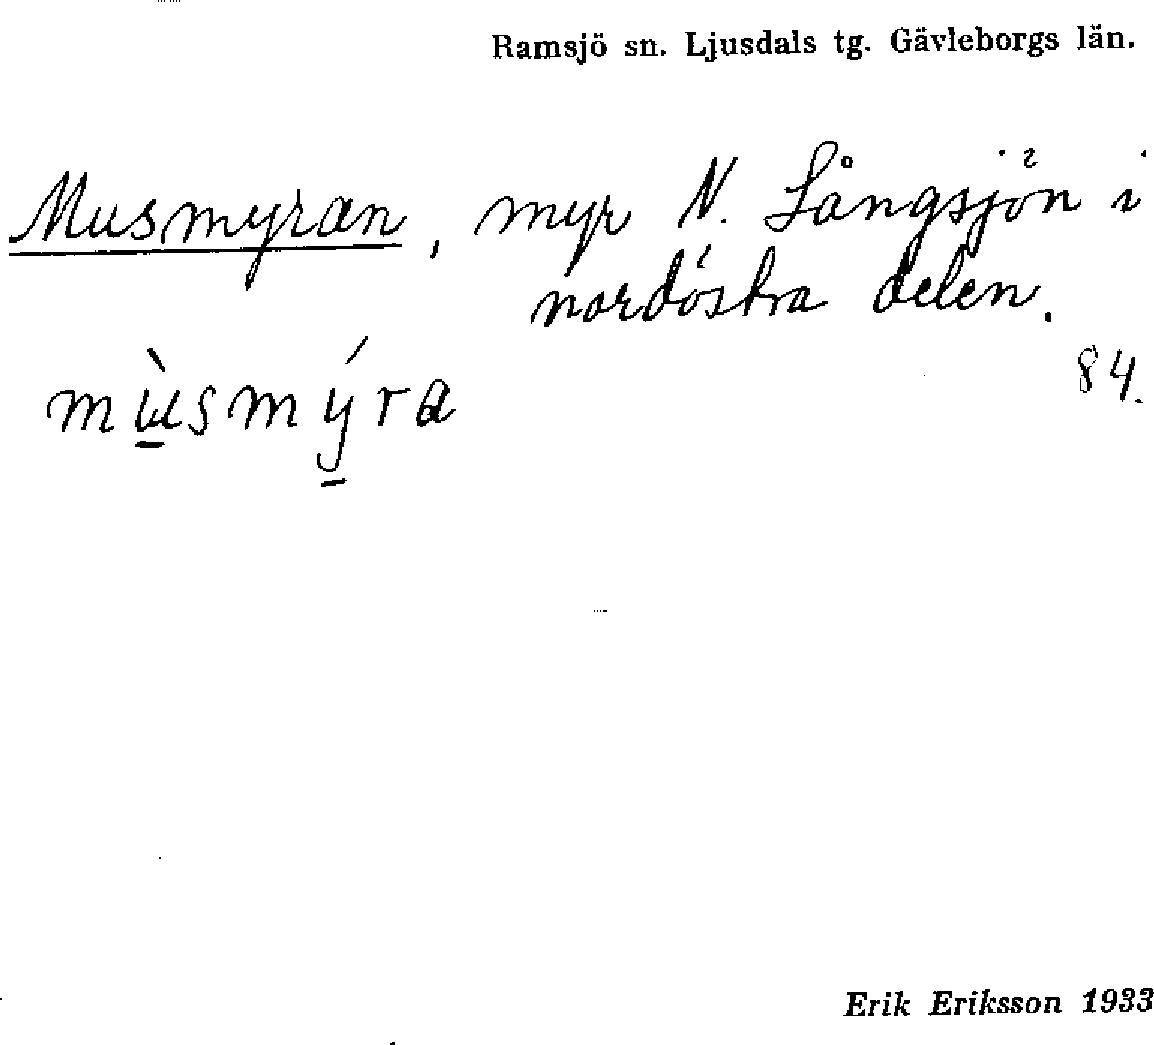 Ramsjö sn. Ljusdals tg. Gävleborgs län.
Musmyran, myr N. Långsjön i
nordöstra delen.
84.
mùsmýra
Erik Eriksson 1933